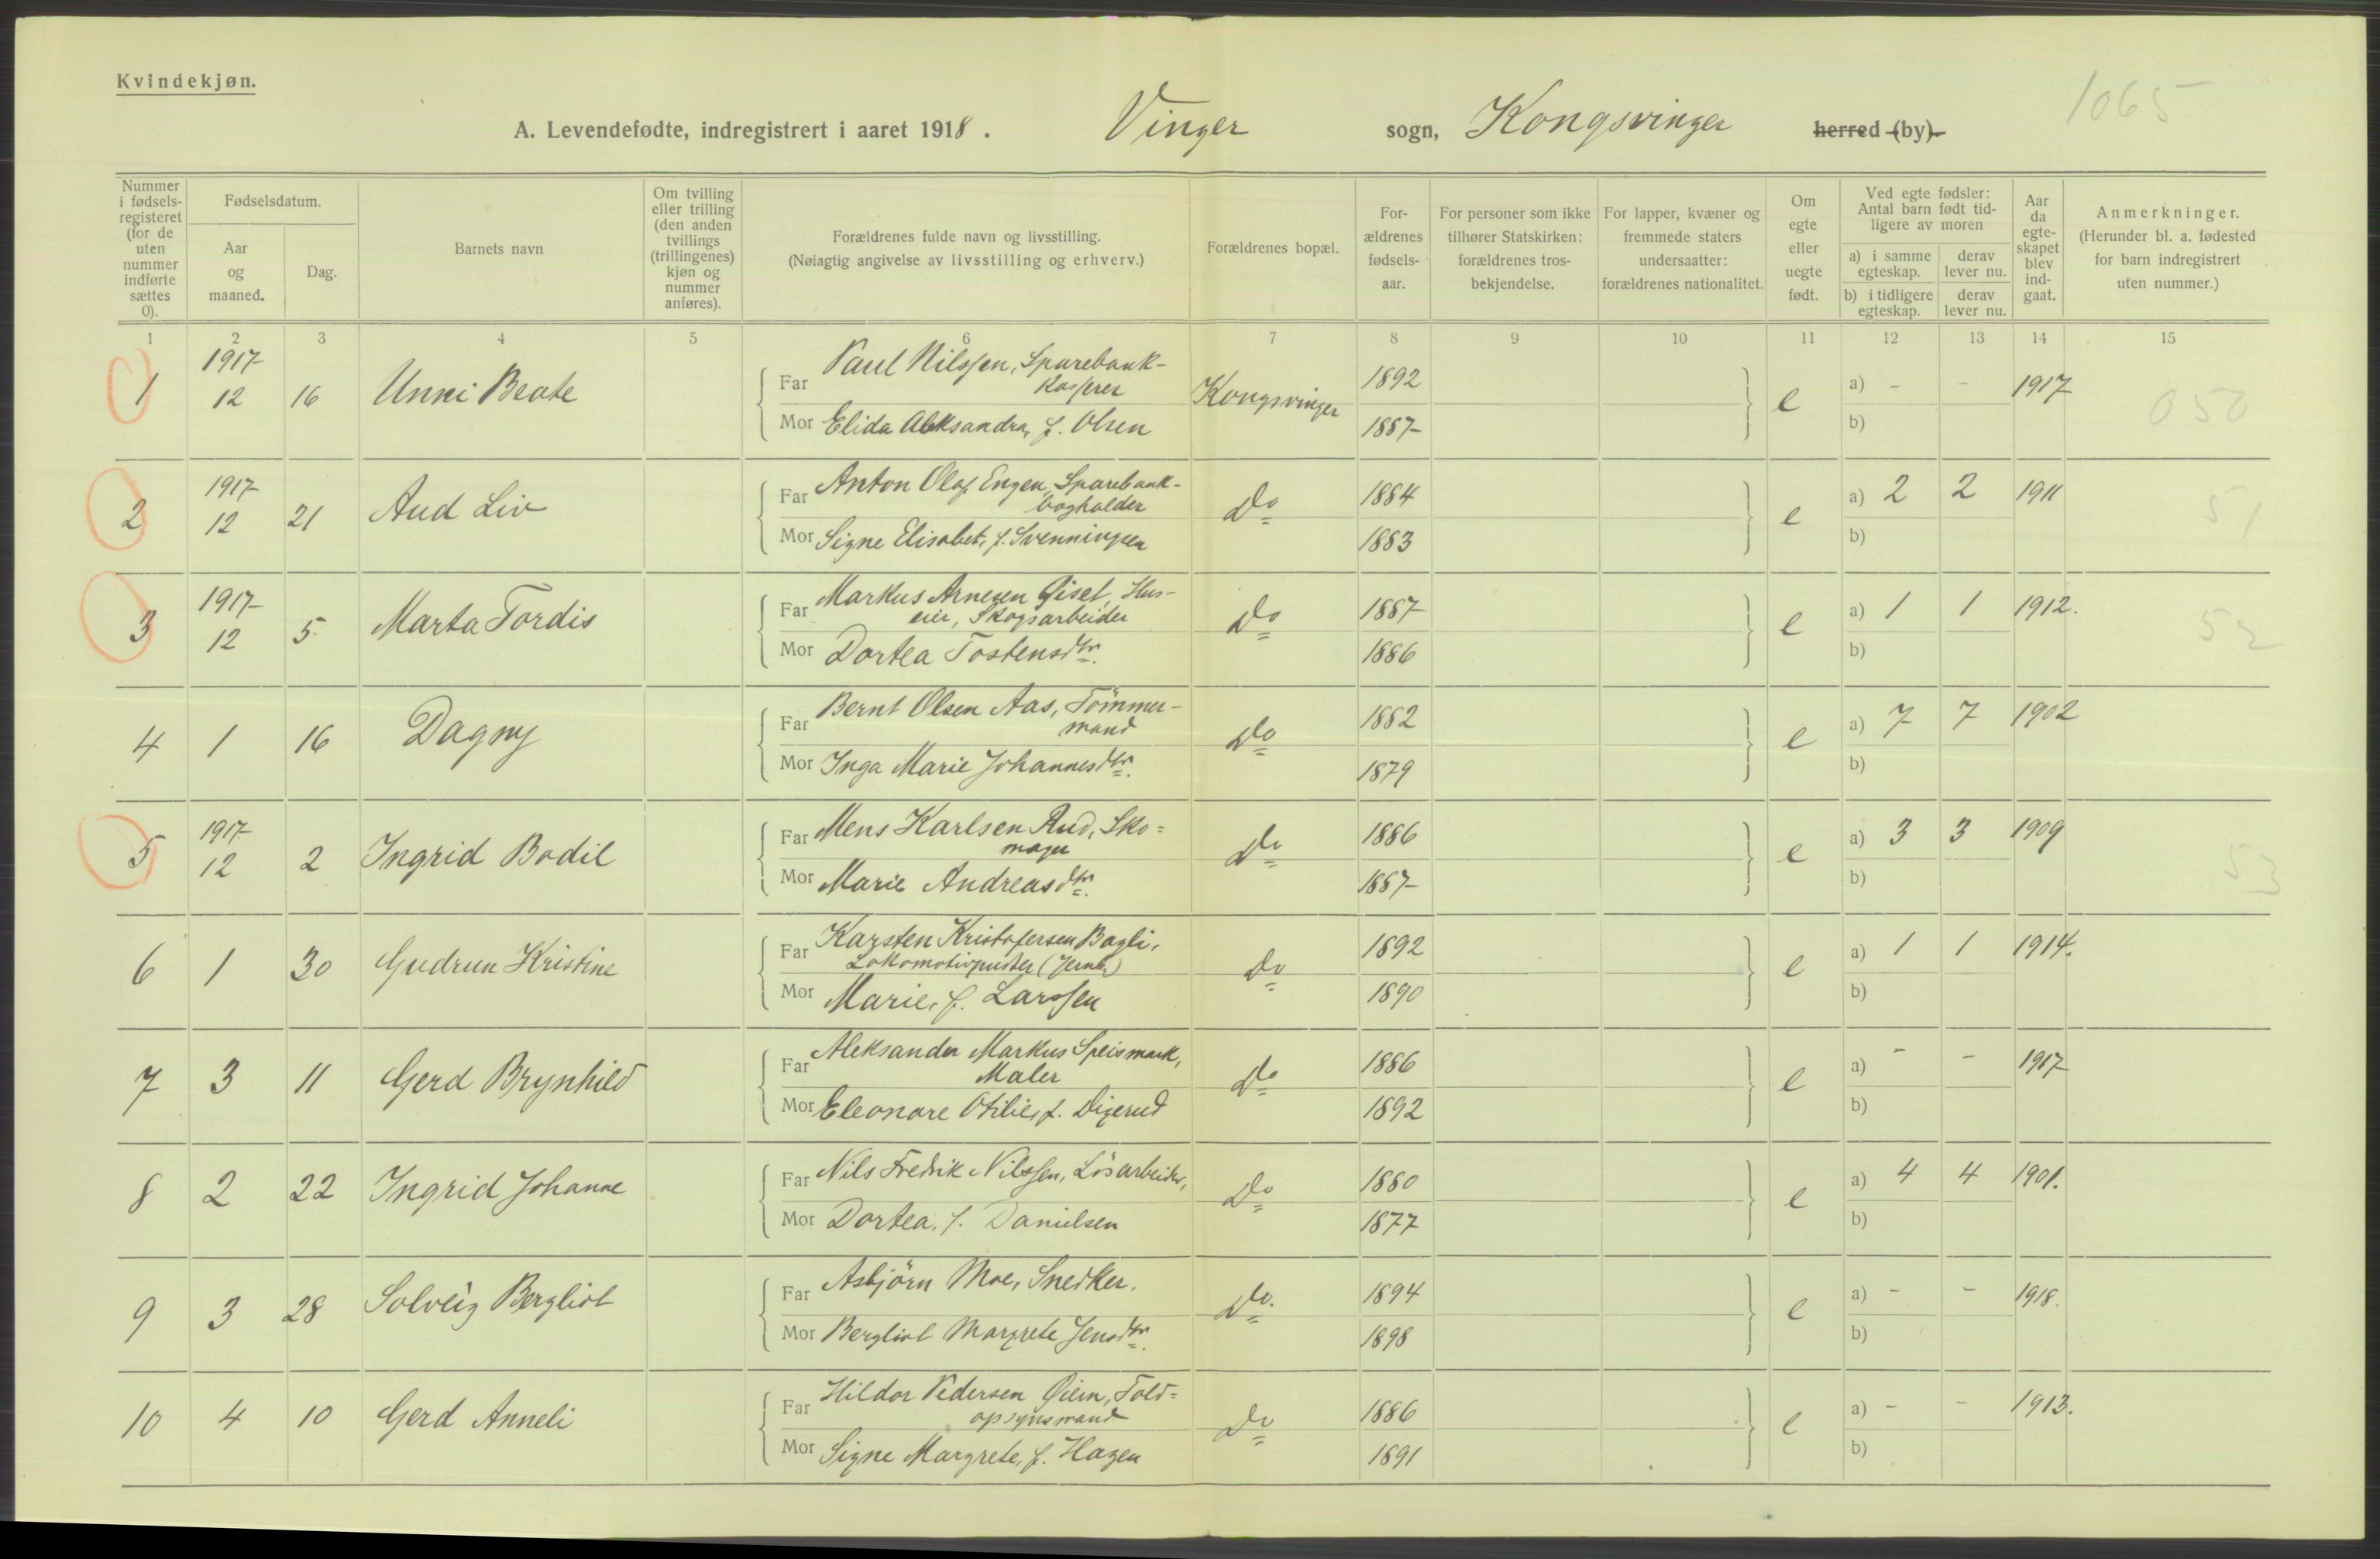 Kvindekjøn.
1065
A. Levendefødte, indregistrert i aaret 1918. Vinger sogn, Kongsvinger herred (by).
Nummer i fødsels-registeret (for de uten nummer indførte sættes 0).
Fødselsdatum.
Aar og maaned.
Dag.
Barnets navn
Om tvilling eller trilling (den anden tvillings (trillingenes) kjøn og nummer anføres).
Forældrenes fulde navn og livsstilling.
(Nøiagtig angivelse av livsstilling og erhverv.)
Forældrenes bopæl.
For-ældrenes fødsels-aar.
For personer som ikke tilhører Statskirken: forældrenes tros-bekjendelse.
For lapper, kvæner og fremmede staters undersaatter: forældrenes nationalitet.
Om egte eller uegte født.
Ved egte fødsler: Antal barn født tid-ligere av moren
a) i samme egteskap.
derav lever nu.
b) i tidligere egteskap.
derav lever nu.
Aar da egte-skapet blev ind-gaat.
Anmerkninger.
(Herunder bl. a. fødested for barn indregistrert uten nummer.)
1 2 3 4 5 6 7 8 9 10 11 12 13 14 15
1 1917 12 16 Unni Beate
Far Paul Nilssen, Sparebank-
kasserer
Kongsvinger 1892 e a) - - 1917 050
Mor Elida Aleksandra, f. Olsen 1887 b)
2 1917 12 21 Aud Liv
Far Anton Olaf Engen, Sparebank-
bogholder
Do 1884 e a) 2 2 1911 51
Mor Signe Elisabet, f. Svenningsen 1883 b)
3 1917 12 5 Marta Tordis
Far Markus Arnesen Giset, Hus-
eier, Skogsarbeider
Do 1887 e a) 1 1 1912. 52
Mor Dortea Tostensdtr. 1886 b)
4 1 16 Dagny
Far Bernt Olsen Aas, Tömmer-
mand
Do 1882 e a) 7 7 1902
Mor Inga Marie Johannesdtr. 1879 b)
5 1917 12 2 Ingrid Bodil
Far Mens Karlsen Rud, Sko=
mager
Do 1886 e a) 3 3 1909 53
Mor Marie Andreasdtr. 1887 b)
6 1 30 Gudrun Kristine
Far Karsten Kristofersen Bogli,
Lokomotivpudser (Jernb.)
Do 1892 e a) 1 1 1914.
Mor Marie, f. Larssen 1890 b)
7 3 11 Gerd Brynhild
Far Aleksander Markus Speismark,
Maler
Do 1886 e a) - - 1917
Mor Eleonore Otilie, f. Digerud 1892 b)
8 2 22 Ingrid Johanne
Far Nils Fredrik Nilssen, Lösarbeider,
Do 1880 e a) 4 4 1901.
Mor Dortea, f. Danielsen 1877 b)
9 3 28 Solveig Bergliot
Far Asbjörn Moe, Snedker.
Do. 1894 e a) - - 1918.
Mor Bergliot Margrete Jensdtr. 1898 b)
10 4 10 Gerd Anneli
Far Hildor Pedersen Öiern, Told=
opsynsmand
Do 1886 e a) - - 1913.
Mor Signe Margrete, f. Hagen 1891 b)